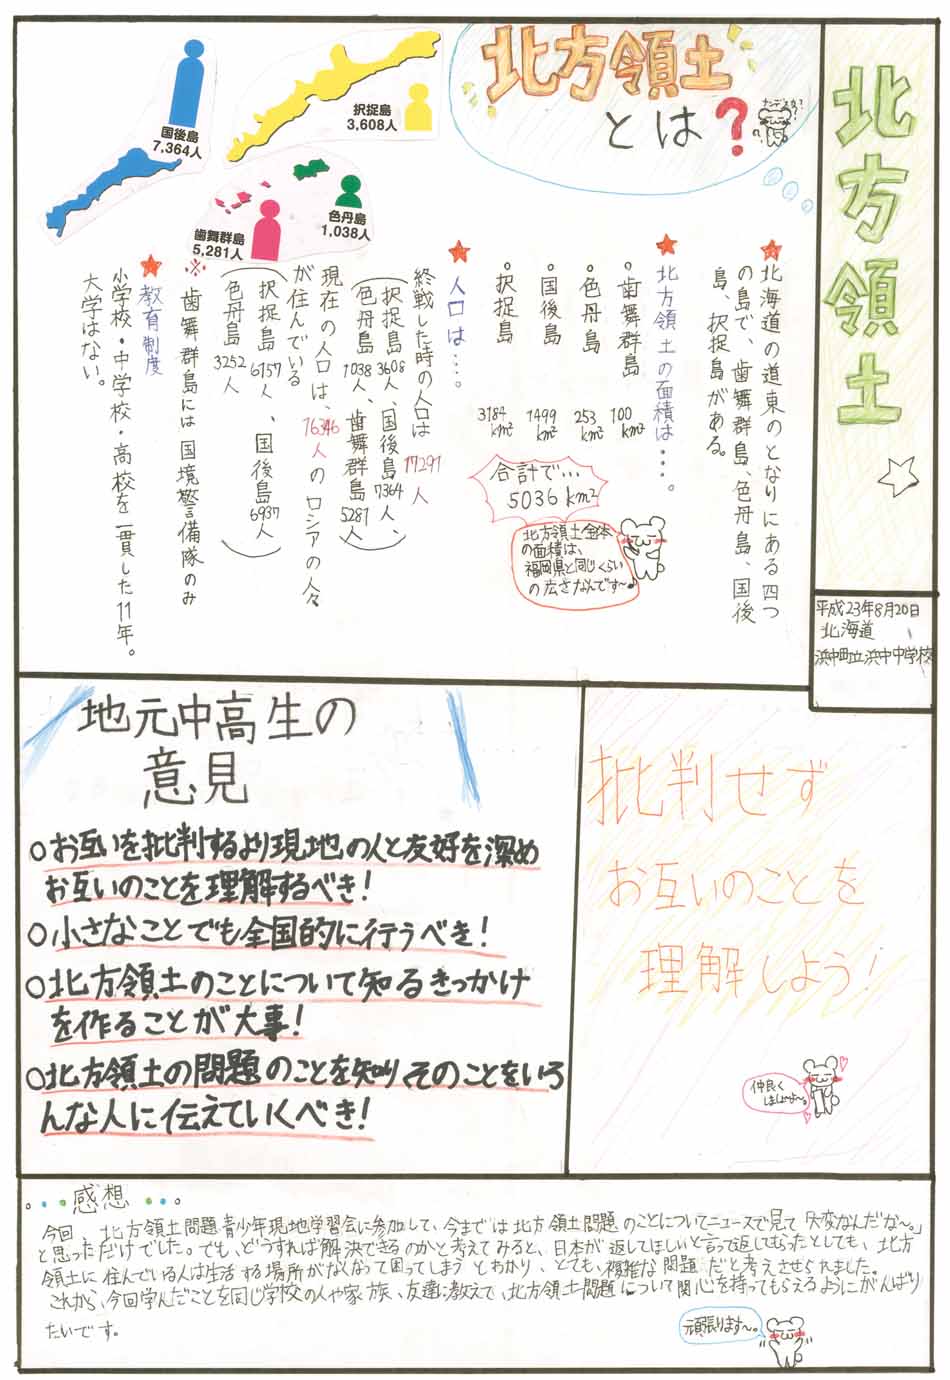 北方領土
平成23年8月20日
北海道
浜中町立浜中中学校
北方領土
とは?
ナンデスカ?
国後島
7,364人
択捉島
3,608人
色丹島
1,038人
歯舞群島
5,281人
★北海道の道東のとなりにある四つ
の島で、歯舞群島、色丹島、国後
島、択捉島がある。
★北方領土の面積は…。
・歯舞群島 100km²
・色丹島 253km²
・国後島 1499km²
・択捉島 3184km²
合計で…
5036km²
北方領土全体
の面積は、
福岡県と同じくらい
の広さなんです〜♪
★人口は…。
終戦した時の人口は17291人
(択捉島3608人、国後島7364人、
色丹島1038人、歯舞群島5281人)
現在の人口は、16346人のロシアの人々
が住んでいる
(択捉島6157人、国後島6937人
色丹島3252人)
※歯舞群島には国境警備隊のみ
★教育制度
小学校・中学校・高校を一貫した11年。
大学はない。
地元中高生の
意見
○お互いを批判するより現地の人と友好を深め
お互いのことを理解するべき!
○小さなことでも全国的に行うべき!
○北方領土のことについて知るきっかけ
を作ることが大事!
○北方領土の問題のことを知り、そのことをいろ
んな人に伝えていくべき!
批判せず
お互いのことを
理解しよう!
仲良く
しましょ〜。
…感想…
今回、北方領土問題青少年現地学習会に参加して、今までは北方領土問題のことについてニュースで見て「大変なんだな〜。」
と思っただけでした。でも、どうすれば解決できるのかと考えてみると、日本が返してほしいと言って返してもらったとしても、北方
領土に住んでいる人は生活する場所がなくなって困ってしまうとわかり、とても、複雑な問題だと考えさせられました。
これから、今回学んだことを同じ学校の人や家族、友達に教えて、北方領土問題について関心を持ってもらえるようにがんばり
たいです。
頑張ります〜。